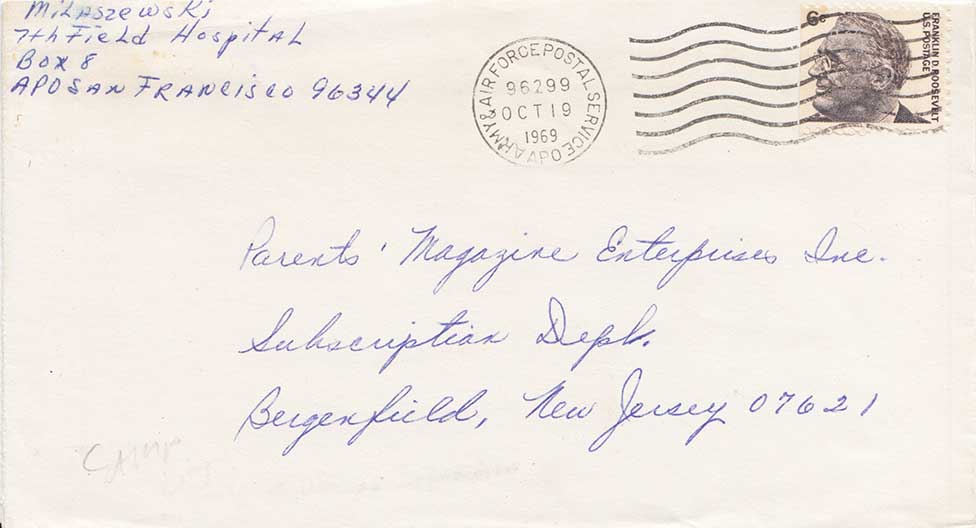 Milaszewski
7th Field Hospital
Box 8
APO SAN FRANCISCO 96344
ARMY & AIR FORCE POSTAL SERVICE
96299
OCT 19
1969
APO
6c
FRANKLIN D. ROOSEVELT
U.S. POSTAGE
Parents' Magazine Enterprises Inc.
Subscription Dept.
Bergenfield, New Jersey 07621